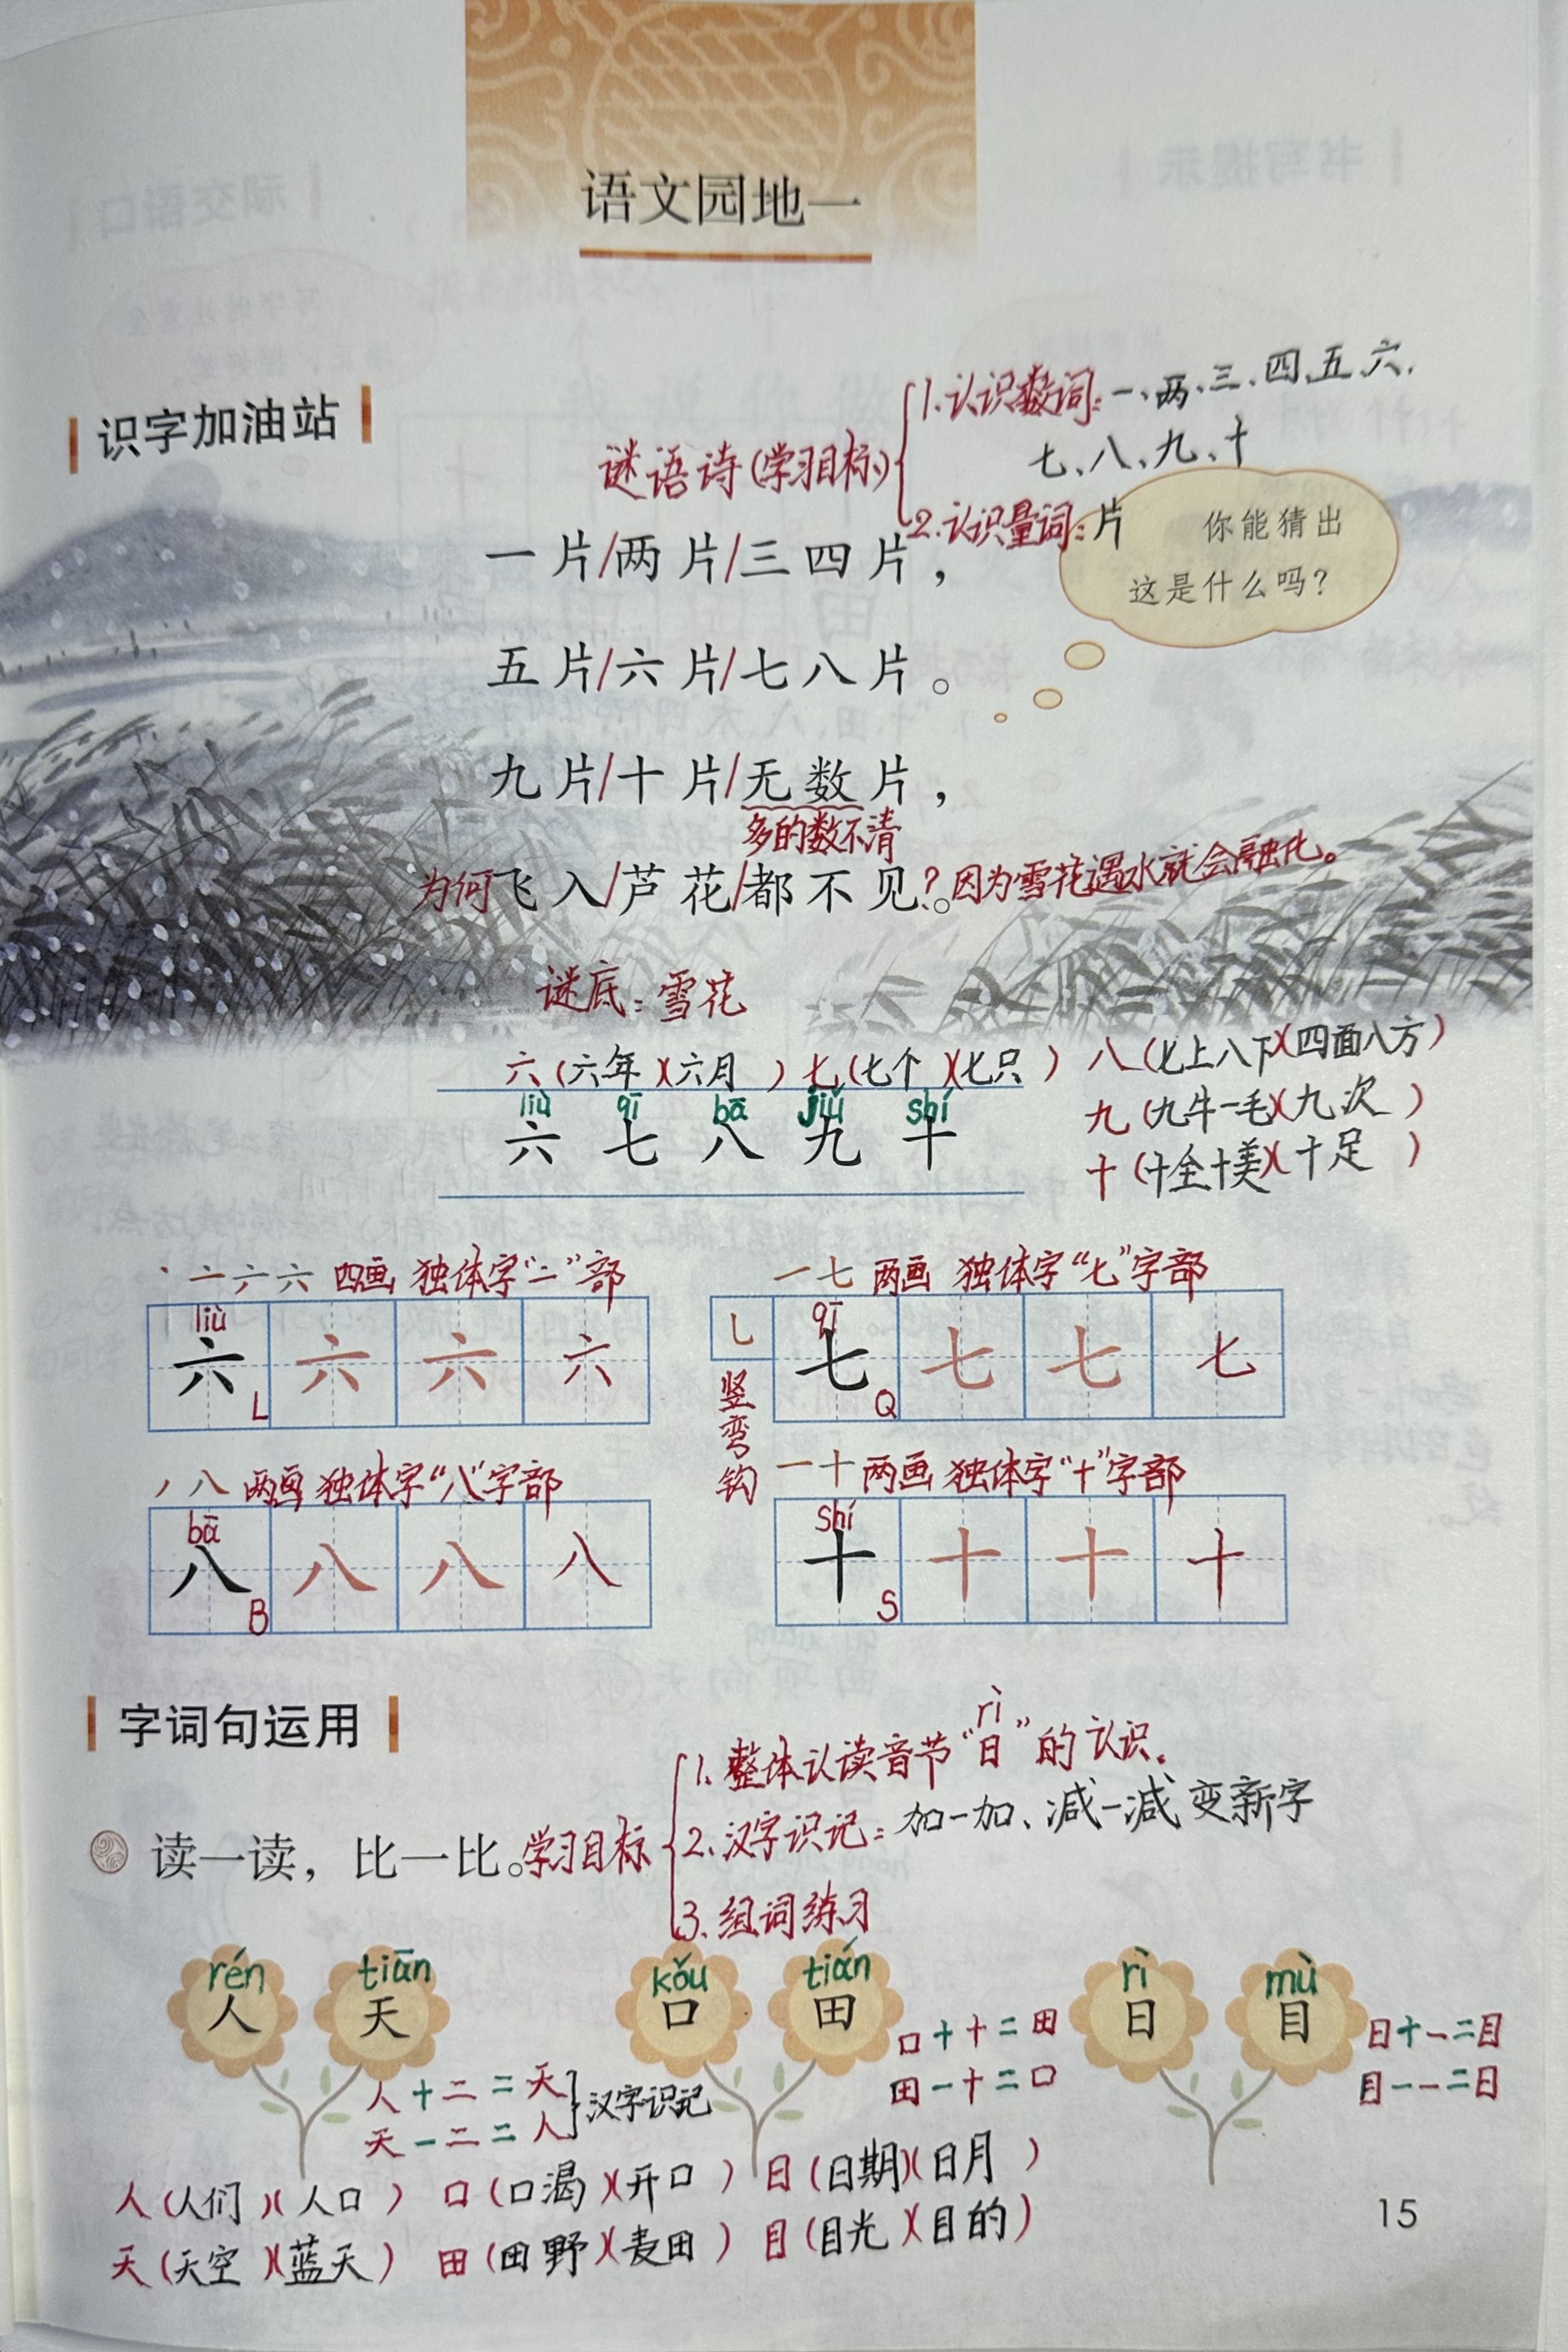 语文园地一
识字加油站
谜语诗(学习目标)
1.认识数词:一、两、三、四、五、六、
七、八、九、十
2.认识量词:片
你能猜出
这是什么吗?
一片/两片/三四片,
五片/六片/七八片。
九片/十片/无数片,
多的数不清
为何飞入/芦花/都不见?。因为雪花遇水就会融化。
谜底:雪花
六(六年)(六月) 七(七个)(七只) 八(七上八下)(四面八方)
九(九牛一毛)(九次)
十(十全十美)(十足)
liù qī bā jiǔ shí
六 七 八 九 十
丶 亠 六 六 四画 独体字“亠”部
liù
六 L 六 六 六
一 七 两画 独体字“七”字部
qī
乚 七 Q 七 七 七
竖弯钩
丿 八 两画 独体字“八”字部
bā
八 B 八 八 八
一 十 两画 独体字“十”字部
shí
十 S 十 十 十
字词句运用
读一读,比一比。学习目标
1.整体认读音节“日”的认识.
rì
2.汉字识记:加一加、减一减 变新字
3.组词练习
rén tiān kǒu tián rì mù
人 天 口 田 日 目
人+二=天
天-二=人
汉字识记
口+十=田
田-十=口
日+一=目
目-一=日
人(人们)(人口) 口(口渴)(开口) 日(日期)(日月)
天(天空)(蓝天) 田(田野)(麦田) 目(目光)(目的)
15